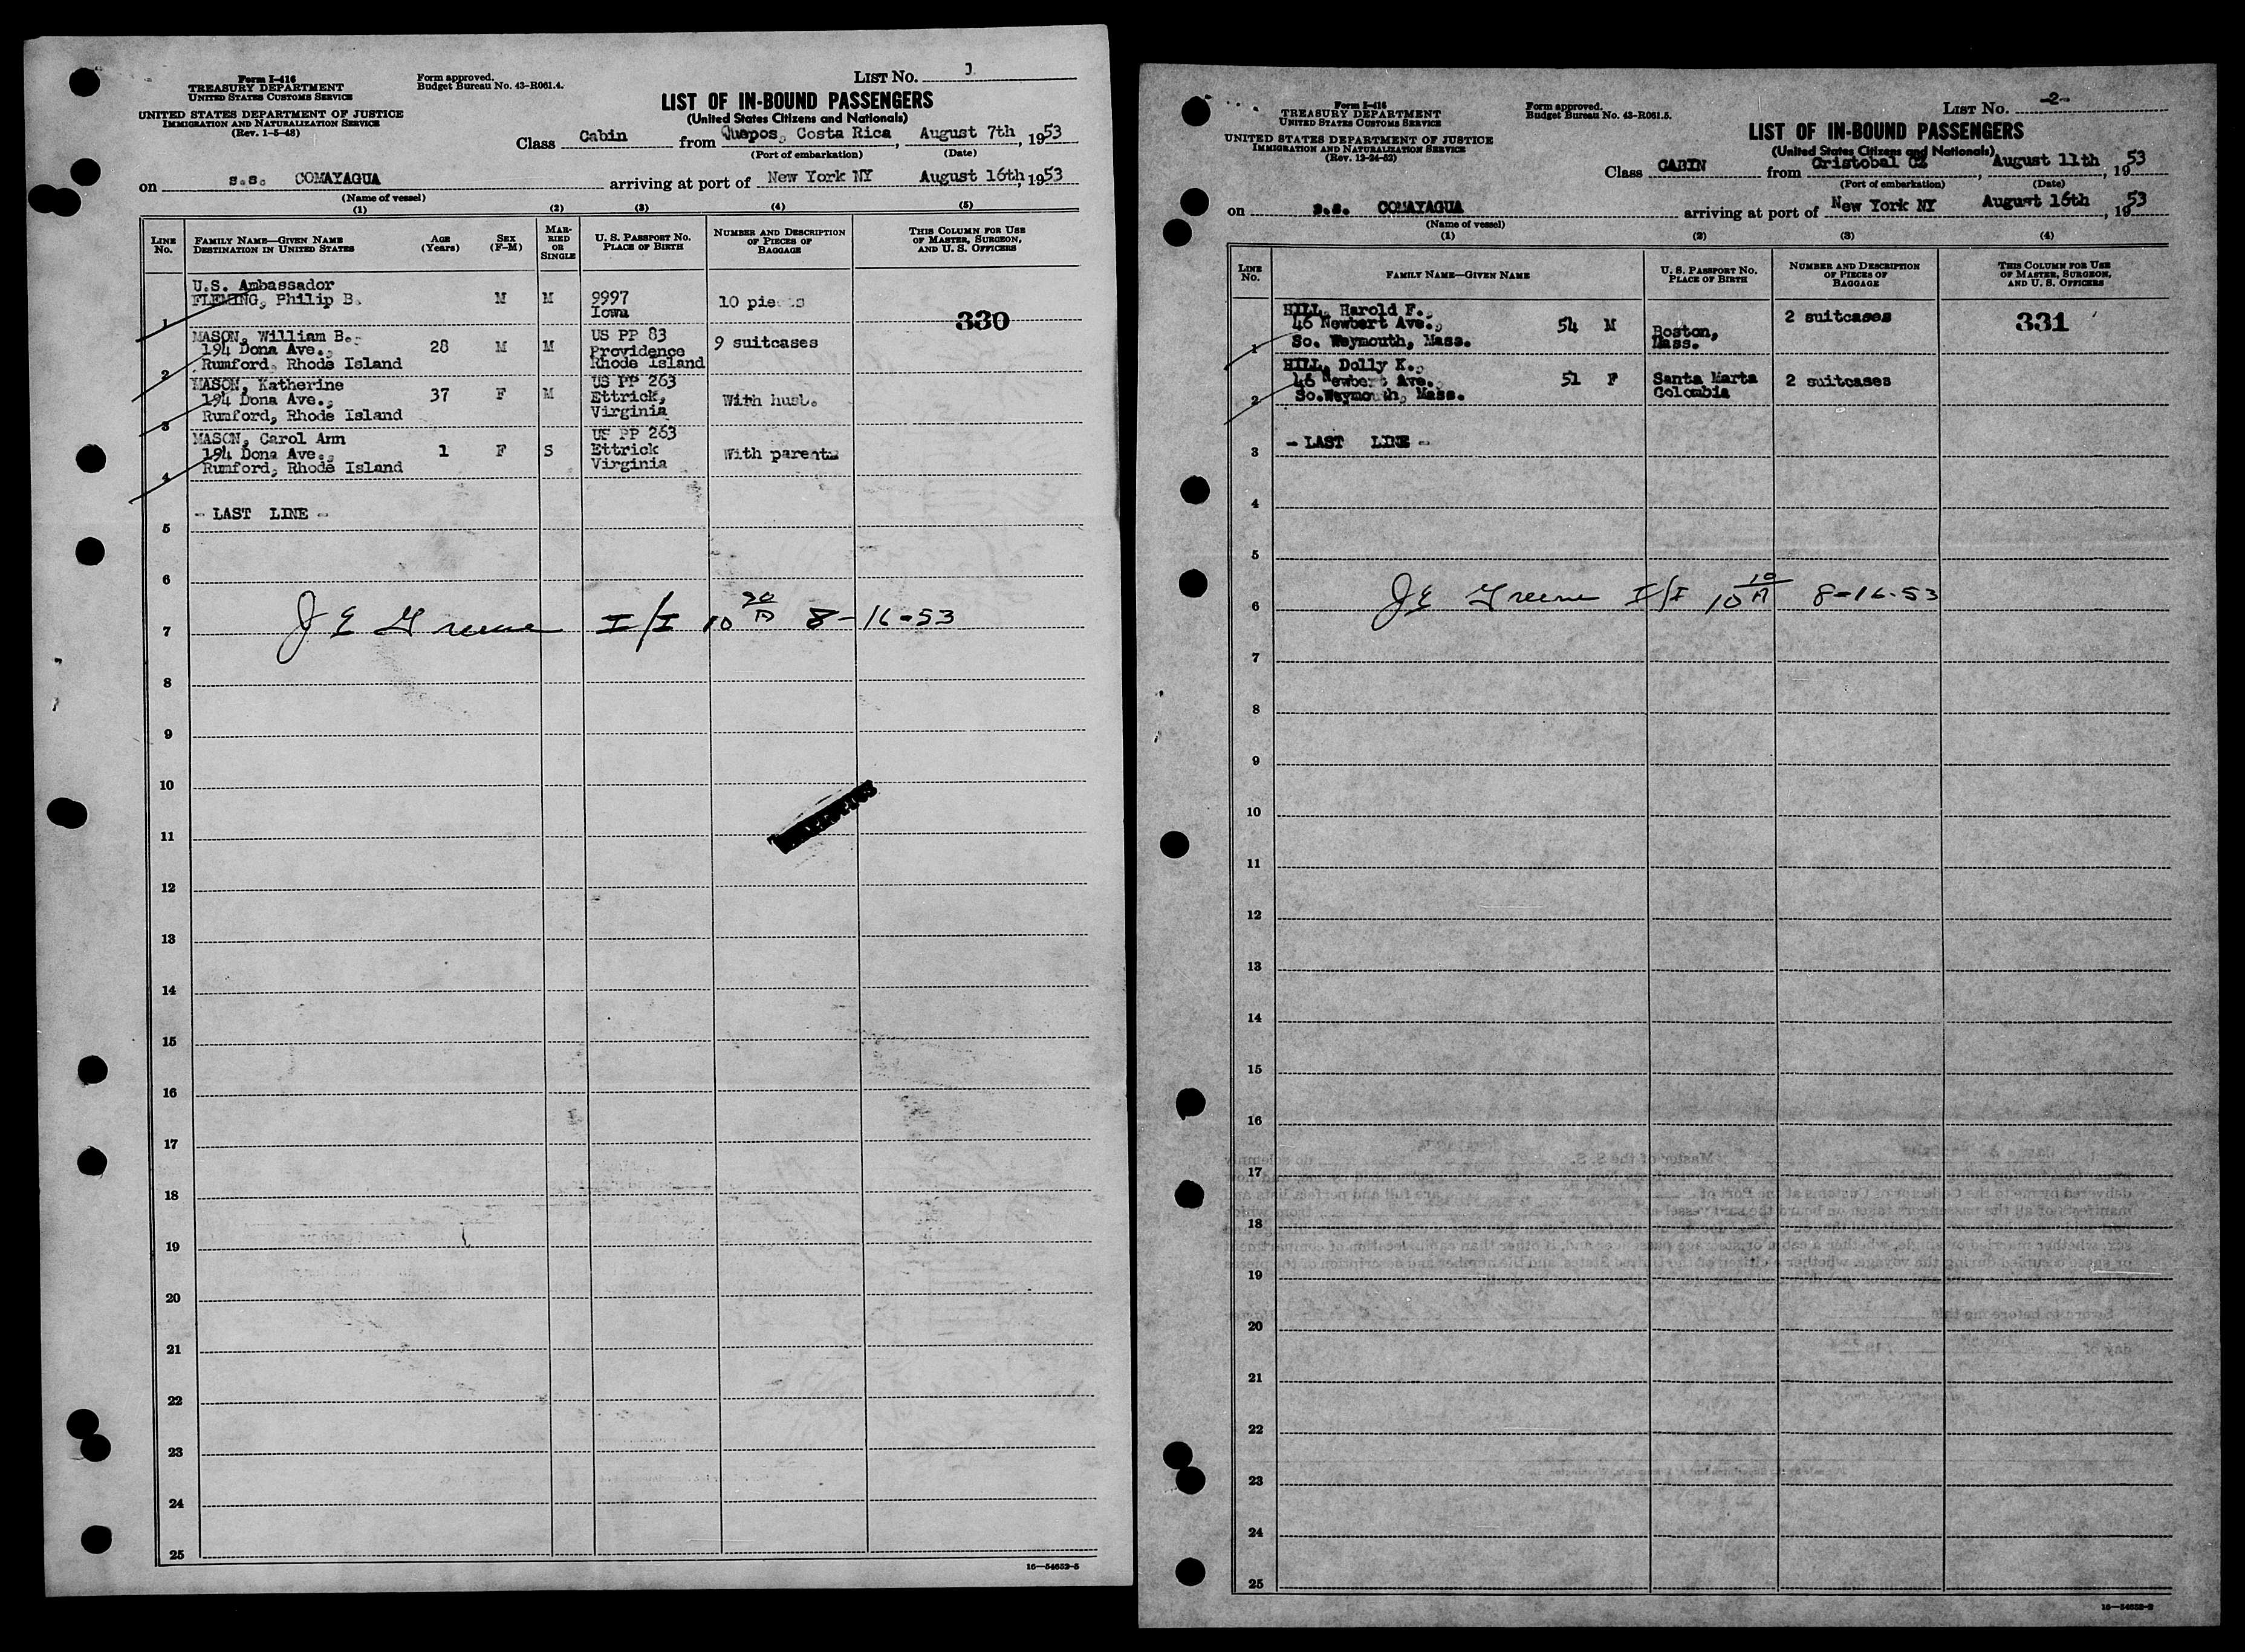 Form I-416
TREASURY DEPARTMENT
UNITED STATES CUSTOMS SERVICE
UNITED STATES DEPARTMENT OF JUSTICE
IMMIGRATION AND NATURALIZATION SERVICE
(Rev. 1-5-48)
Form approved.
Budget Bureau No. 43-R061.4.
LIST NO. 1
LIST OF IN-BOUND PASSENGERS
(United States Citizens and Nationals)
Class Cabin from Quepos, Costa Rica, August 7th, 1953
(Port of embarkation) (Date)
on s.s. COMAYAGUA arriving at port of New York NY August 16th, 1953
(Name of vessel)
(1) (2) (3) (4) (5)
LINE NO. FAMILY NAME—GIVEN NAME DESTINATION IN UNITED STATES AGE (Years) SEX (F-M) MARRIED OR SINGLE U. S. PASSPORT NO. PLACE OF BIRTH NUMBER AND DESCRIPTION OF PIECES OF BAGGAGE THIS COLUMN FOR USE OF MASTER, SURGEON, AND U. S. OFFICERS
U.S. Ambassador
1 FLEMING, Philip B. M M 9997 Iowa 10 pieces
330
MASON, William B. US PP 83
194 Dona Ave., 28 M M Providence 9 suitcases
2 Rumford, Rhode Island Rhode Island
MASON, Katherine US PP 263
194 Dona Ave., 37 F M Ettrick, With husb.
3 Rumford, Rhode Island Virginia
MASON, Carol Ann US PP 263
194 Dona Ave., 1 F S Ettrick With parents
4 Rumford, Rhode Island Virginia
- LAST LINE -
5
6
7 J E Greene I/I 10 20 A 8-16-53
8
9
10
11
12
13
14
15
16
17
18
19
20
21
22
23
24
25
16—54652-5
Form I-416
TREASURY DEPARTMENT
UNITED STATES CUSTOMS SERVICE
UNITED STATES DEPARTMENT OF JUSTICE
IMMIGRATION AND NATURALIZATION SERVICE
(Rev. 12-24-52)
Form approved.
Budget Bureau No. 43-R061.5.
LIST NO. -2-
LIST OF IN-BOUND PASSENGERS
(United States Citizens and Nationals)
Class CABIN from Cristobal CZ, August 11th, 1953
(Port of embarkation) (Date)
on s.s. COMAYAGUA arriving at port of New York NY August 16th, 1953
(Name of vessel)
(1) (2) (3) (4)
LINE NO. FAMILY NAME—GIVEN NAME U. S. PASSPORT NO. PLACE OF BIRTH NUMBER AND DESCRIPTION OF PIECES OF BAGGAGE THIS COLUMN FOR USE OF MASTER, SURGEON, AND U. S. OFFICERS
HILL, Harold F., 2 suitcases 331
46 Newbert Ave., 54 M Boston,
1 So. Weymouth, Mass. Mass.
HILL, Dolly K.,
46 Newbert Ave. 51 F Santa Marta 2 suitcases
2 So. Weymouth, Mass. Colombia
- LAST LINE -
3
4
5
6 J E Greene I/I 10 10 A 8-16-53
7
8
9
10
11
12
13
14
15
16
17
18
19
20
21
22
23
24
25